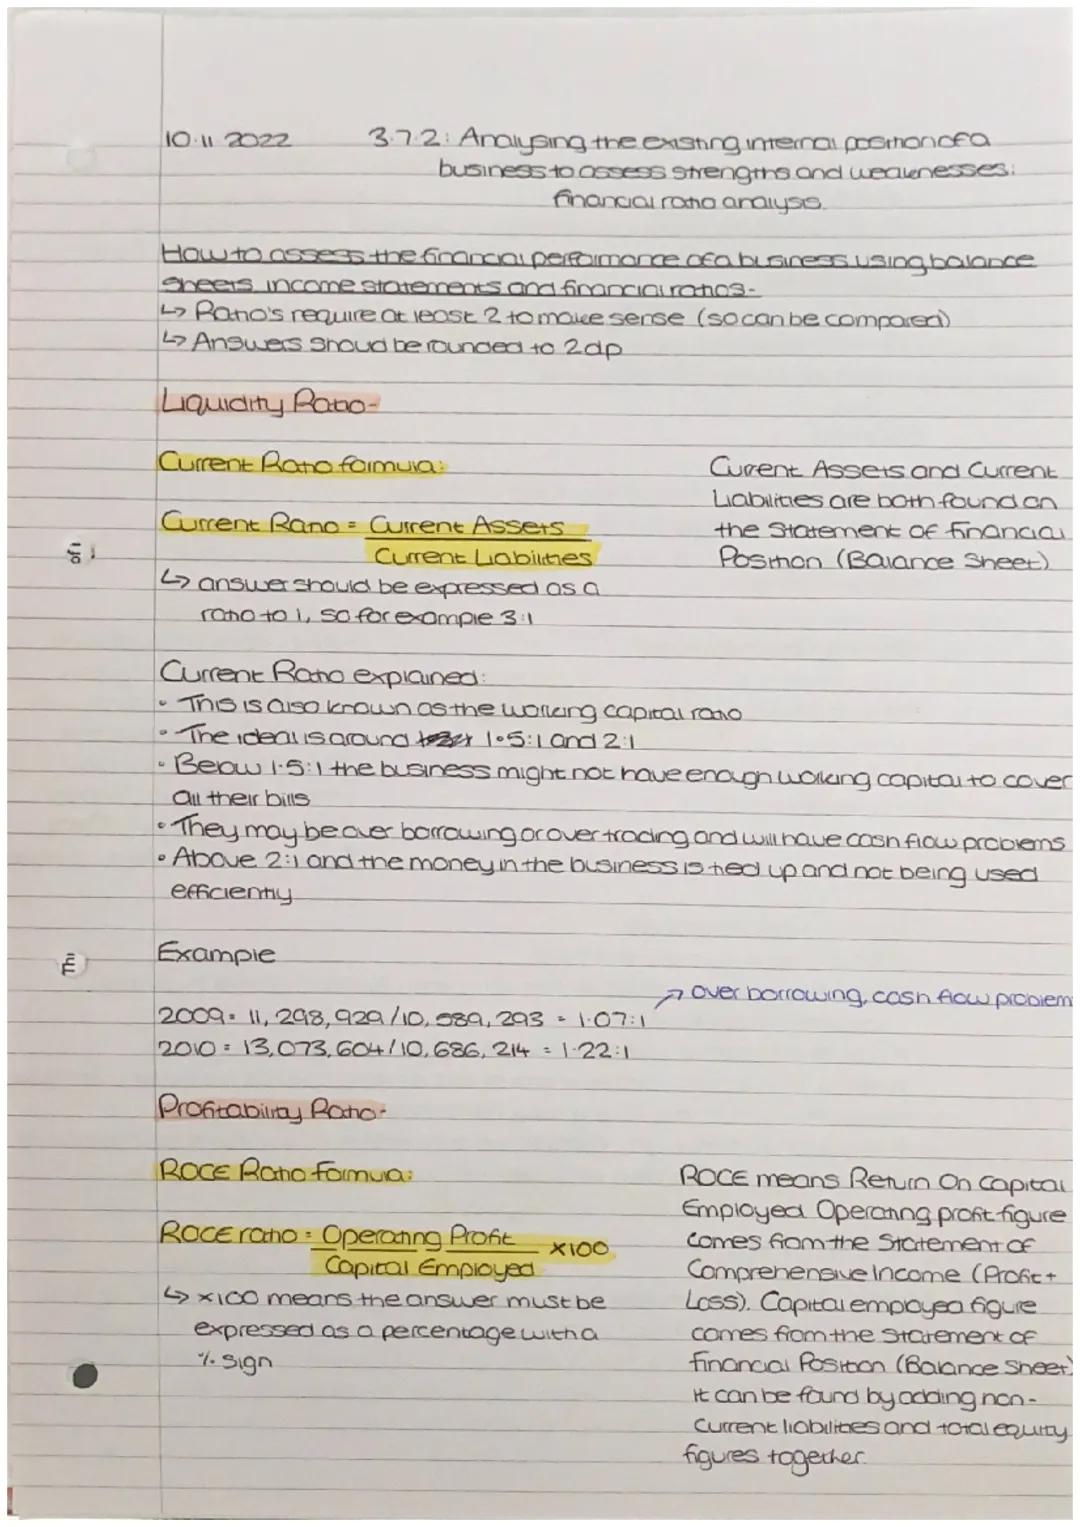 10.11 2022 3.7.2: Analysing the existing internal position of a
business to assess strengths and weaknesses:
financial ratio analysis.
How to assess the financial performance of a business using balance
sheets, income statements and financial ratios-
↳ Ratio's require at least 2 to make sense (so can be compared)
↳ Answers shoud be rounded to 2dp
Liquidity Ratio-
Current Ratio formula:
Current Ratio = Current Assets
Current Liabilities
↳ answer should be expressed as a
ratio to 1, so for example 3:1
Current Assets and Current
Liabilities are both found on
the Statement of Financial
Position (Balance Sheet)
Current Ratio explained:
• This is also known as the working capital ratio
• The ideal is around 1.5:1 and 2:1
• Below 1.5:1 the business might not have enough working capital to cover
all their bills
• They may be over borrowing or over trading and will have cash flow problems
• Above 2:1 and the money in the business is tied up and not being used
efficiently
Example
→ over borrowing, cash flow problem
2009 = 11,298,929/10,589,293 = 1.07:1
2010 = 13,073,604/10,686,214 = 1.22:1
Profitability Ratio-
ROCE Ratio formula:
ROCE ratio = Operating Profit x100
Capital Employed
↳ x100 means the answer must be
expressed as a percentage with a
% sign
ROCE means Return On Capital
Employed. Operating profit figure
comes from the Statement of
Comprehensive Income (Profit +
Loss). Capital employed figure
comes from the Statement of
Financial Position (Balance Sheet)
It can be found by adding non-
current liabilities and total equity
figures together.